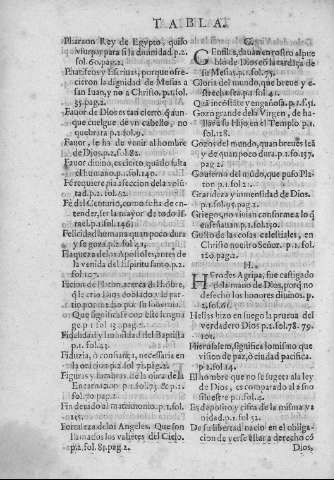 TABLA.
Pharaon Rey de Egypto, quiso
vsurpar para si la diuinidad.p.2.
fol.60.pag.2.
Phariseos y Escriuas, porque ofre-
cieron la dignidad de Mesias a
san Iuan, y no a Christo.p.1.fol.
35.pag.2.
Fauor de Dios es tan cierto q̃ aun
que cuelgue de vn cabello, no
quebrara p.1.fol.9.
Fauor, le ha de venir al hombre
de Dios.p.2.fol.82.
Fauor diuino, es cierto quãdo falta
el humano.p.1.fol.140.
Fè requiere pia afeccion de la volũ
tad.p.1.fol.32.
Fè del Centurio, como se ha de en-
tender, ser la mayor de todo Is-
rael.p.1.fol.146.
Felicidad humana quan poco dura
y se goza.p.2.fol.42.
Flaqueza de los Apostoles, antes de
la venida del Spiritu santo.p.2.
fol.107.
Ficion de Platon acerca del hõbre,
que le crio Dios doblado, y le par-
tio por medio por su soberuia.
Que significasse con este lengua
ge p.1 fol.13. pag.2.
Fidelidad y humildad del Baptista
p.1.fol.43.
Fiduzia, o confiança, necessaria en
la oracion p.2.fol 75.pag.2.
Figuras y sombras de la obra de la
Encarnacion p.1.fol.73. & p.2.
fol.70. pag.2.
Fin deseado al matrimonio p.1.fol.
145.
Fortaleza de los Angeles. Que son
llamados los valientes del Cielo.
p.2.fol.85.pag.2.
G.
Gentiles, dauan en rostro al pue
blo de Dios cõ la tardãça de
su Mesias.p.1.fol.75.
Gloria del mundo, que breue y es-
trecha sea p.2.fol.41.
Quã inconstante y engañosa.p.2.f.51.
Gozo grande de la Virgen, de ha-
llar a su Hijo en el Templo p.1.
fol.128.
Gozos del mundo, quan breues seã
y de quan poco dura.p.2.fo.157.
pag.2.
Gouierno del mundo, que puso Pla-
ton p.1.fol.2.
Grandeza y inmensidad de Dios.
p.1.fol.95.pag.2.
Griegos, no viuian conforme a lo q̃
enseñauan.p.1.fol.150.
Gusto de las cosas celestiales, en
Christo nuestro Señor. p.1. fol.
150.pag.2.
H.
Herodes Agripa, fue castigado
de la mano de Dios, porq̃ no
desechò los honores diuinos.p.
2.fol.61.
Helias hizo en fuego la prueua del
verdadero Dios p.1.fol.78. 79.
101.
Hierusalem, significa lo mismo que
vision de paz, o ciudad pacifica.
p.1.fol.14.
El hombre que no se sugeta a la ley
de Dios, es comparado al asno
siluestre p.1.fol.4.
Es deposito y cifra de la misma va
nidad.p.1.fol.52.
De su libertad nacio en el obliga-
cion de yerse ellar a derecho cõ
Dios,